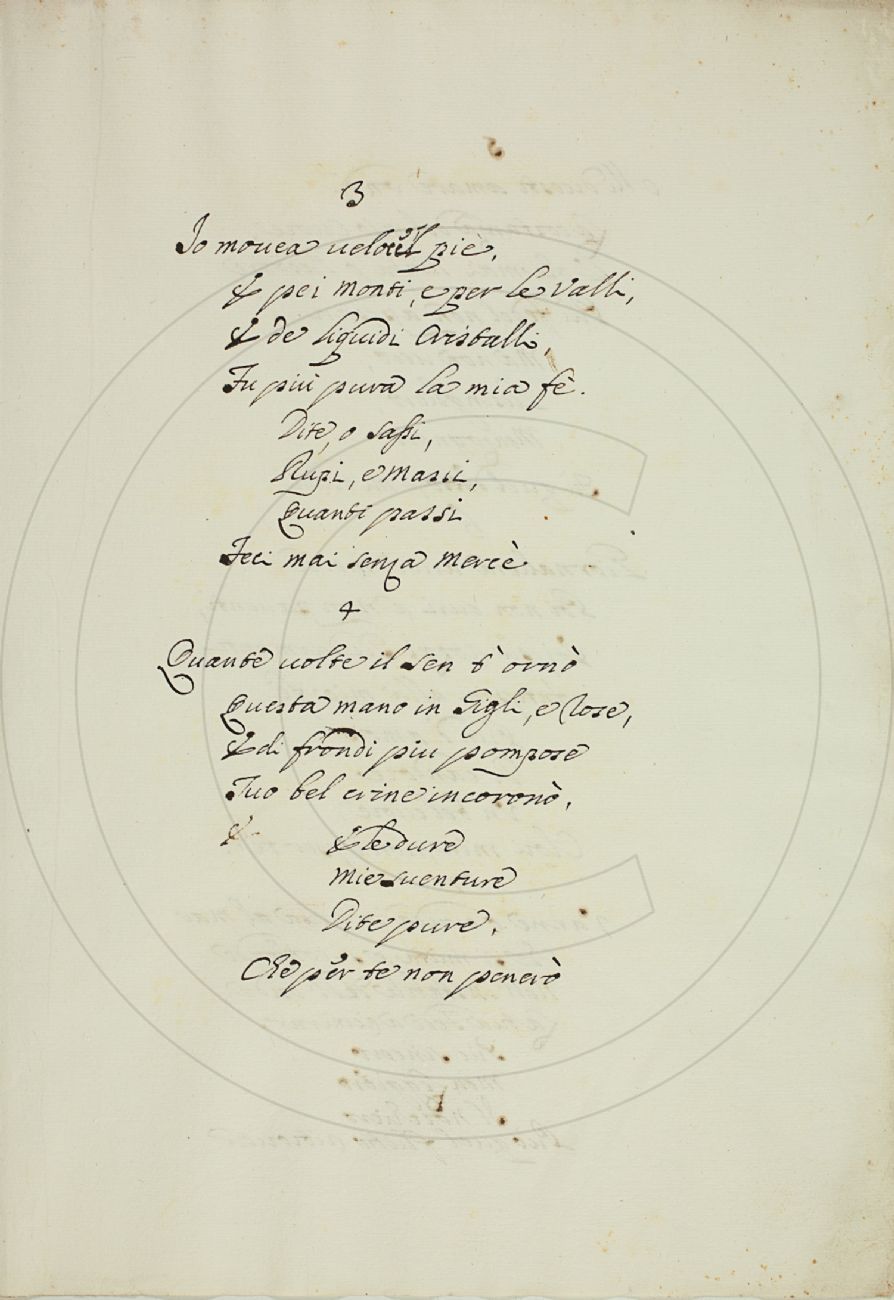 3
Io mouea ueloce il piè,
E pei monti, e per le Valli,
E de liquidi Cristalli,
Fu più pura la mia fè.
Dite, o sassi,
Rupi, e Massi,
Quanti passi
Feci mai senza Mercè
4
Quante uolte il sen t'ornò
Questa mano in Gigli, e Rose,
E di frondi piu pompose
Tuo bel crine incoronò,
E
E le dure
Mie suenture
Dite pure,
Che per te non penerò